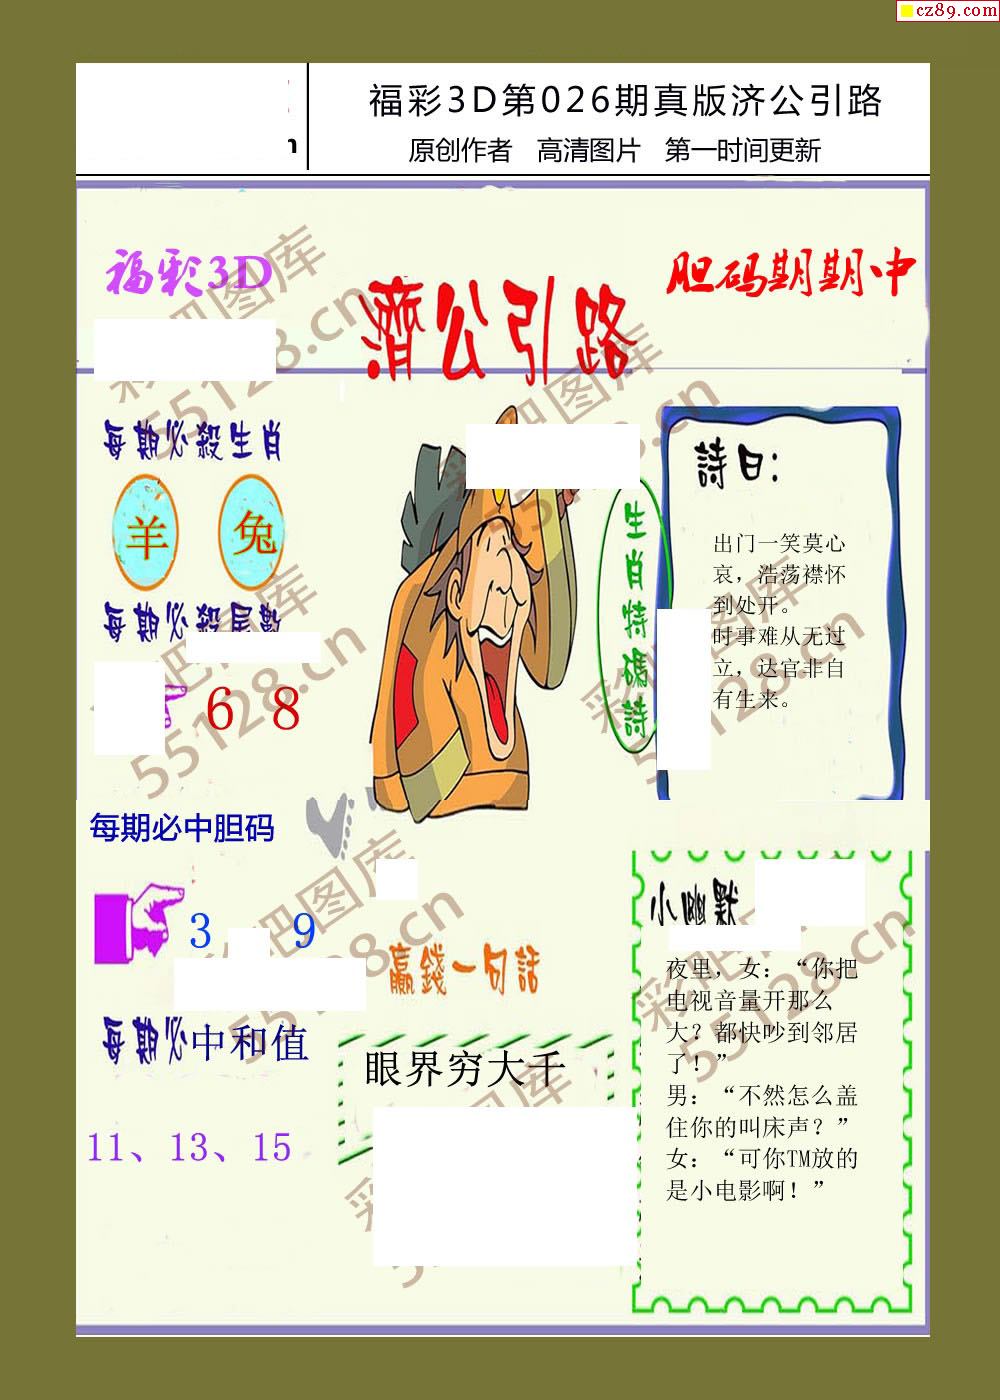 cz89.com
福彩3D第026期真版济公引路
原创作者 高清图片 第一时间更新
福彩3D
濟公引路
胆码期期中
每期必殺生肖
羊 兔
每期必殺尾數
6 8
每期必中胆码
3 9
每期必中和值
11、13、15
生肖特碼詩
詩曰：
出门一笑莫心
哀，浩荡襟怀
到处开。
时事难从无过
立，达官非自
有生来。
贏錢一句話
眼界穷大千
小幽默
夜里，女：“你把
电视音量开那么
大？都快吵到邻居
了！”
男：“不然怎么盖
住你的叫床声？”
女：“可你TM放的
是小电影啊！”
彩吧图库
55128.cn
彩吧图库
55128.cn
彩吧图库
55128.cn
彩吧图库
55128.cn
彩吧图库
55128.cn